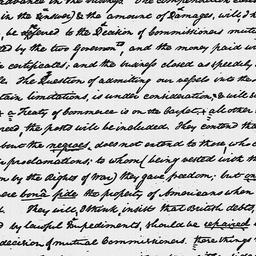 in the business; & the amount of Damages, will, I h
be referred to the Decision of Commissioners mutu
ted by the two Governmts, and the money paid w
in certificates, and the business closed as speedily
le. The Question of admitting our vessels into the
tain limitations, is under consideration, & will
a Treaty of Commerce is on the Carpet, & all other
reed, the posts will be included. They contend tha
about the negroes, does not extend to those who c
ir proclamations; to whom (being vested with th
m by the Rights of War) they gave freedom; but on
ere bona fide the property of Americans when
They will, I think, insist that British debts,
d by lawful Impediments, should be repaired
decision of mutual Commissioners. These things